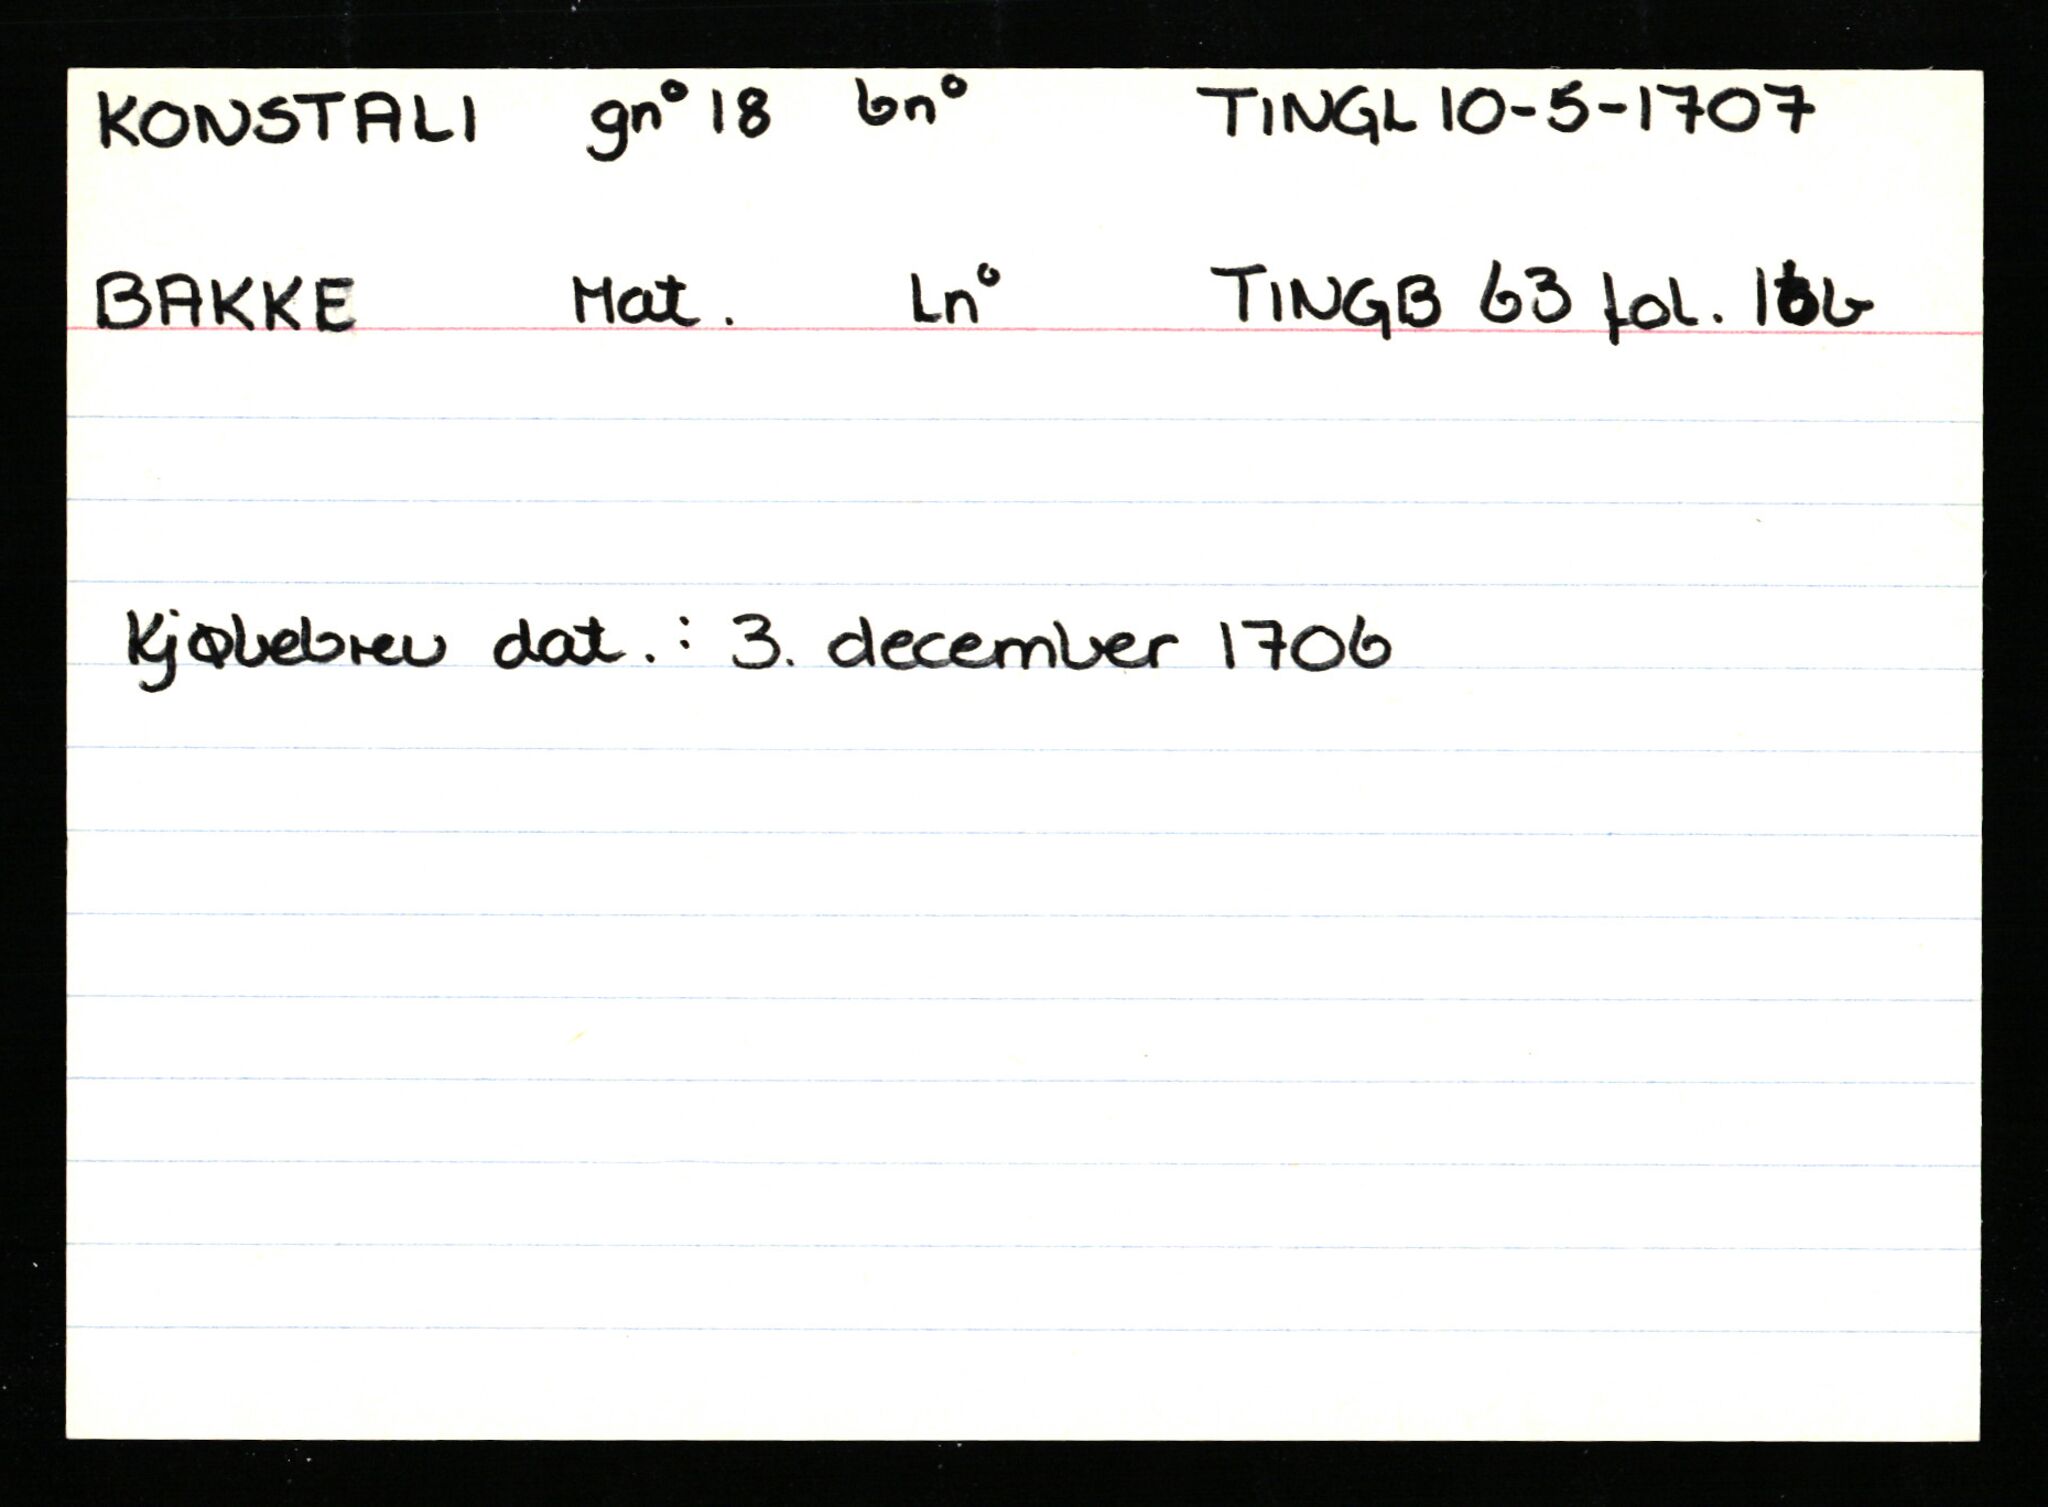 KONSTALI gnº 18 bnº TINGL 10-5-1707
BAKKE Mat. Lnº TINGB 63 fol. 16b
Kjøbebrev dat.: 3. december 1706